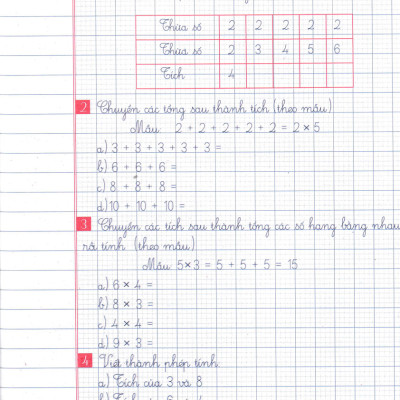 Thừa số 2 2 2 2 2
Thừa số 2 3 4 5 6
Tích 4
2 Chuyển các tổng sau thành tích (theo mẫu)
Mẫu: 2 + 2 + 2 + 2 + 2 = 2 × 5
a) 3 + 3 + 3 + 3 + 3 =
b) 6 + 6 + 6 =
c) 8 + 8 + 8 =
d) 10 + 10 + 10 =
3 Chuyển các tích sau thành tổng các số hạng bằng nhau
rồi tính (theo mẫu)
Mẫu: 5 × 3 = 5 + 5 + 5 = 15
a) 6 × 4 =
b) 8 × 3 =
c) 4 × 4 =
d) 9 × 3 =
4 Viết thành phép tính
a) Tích của 3 và 8